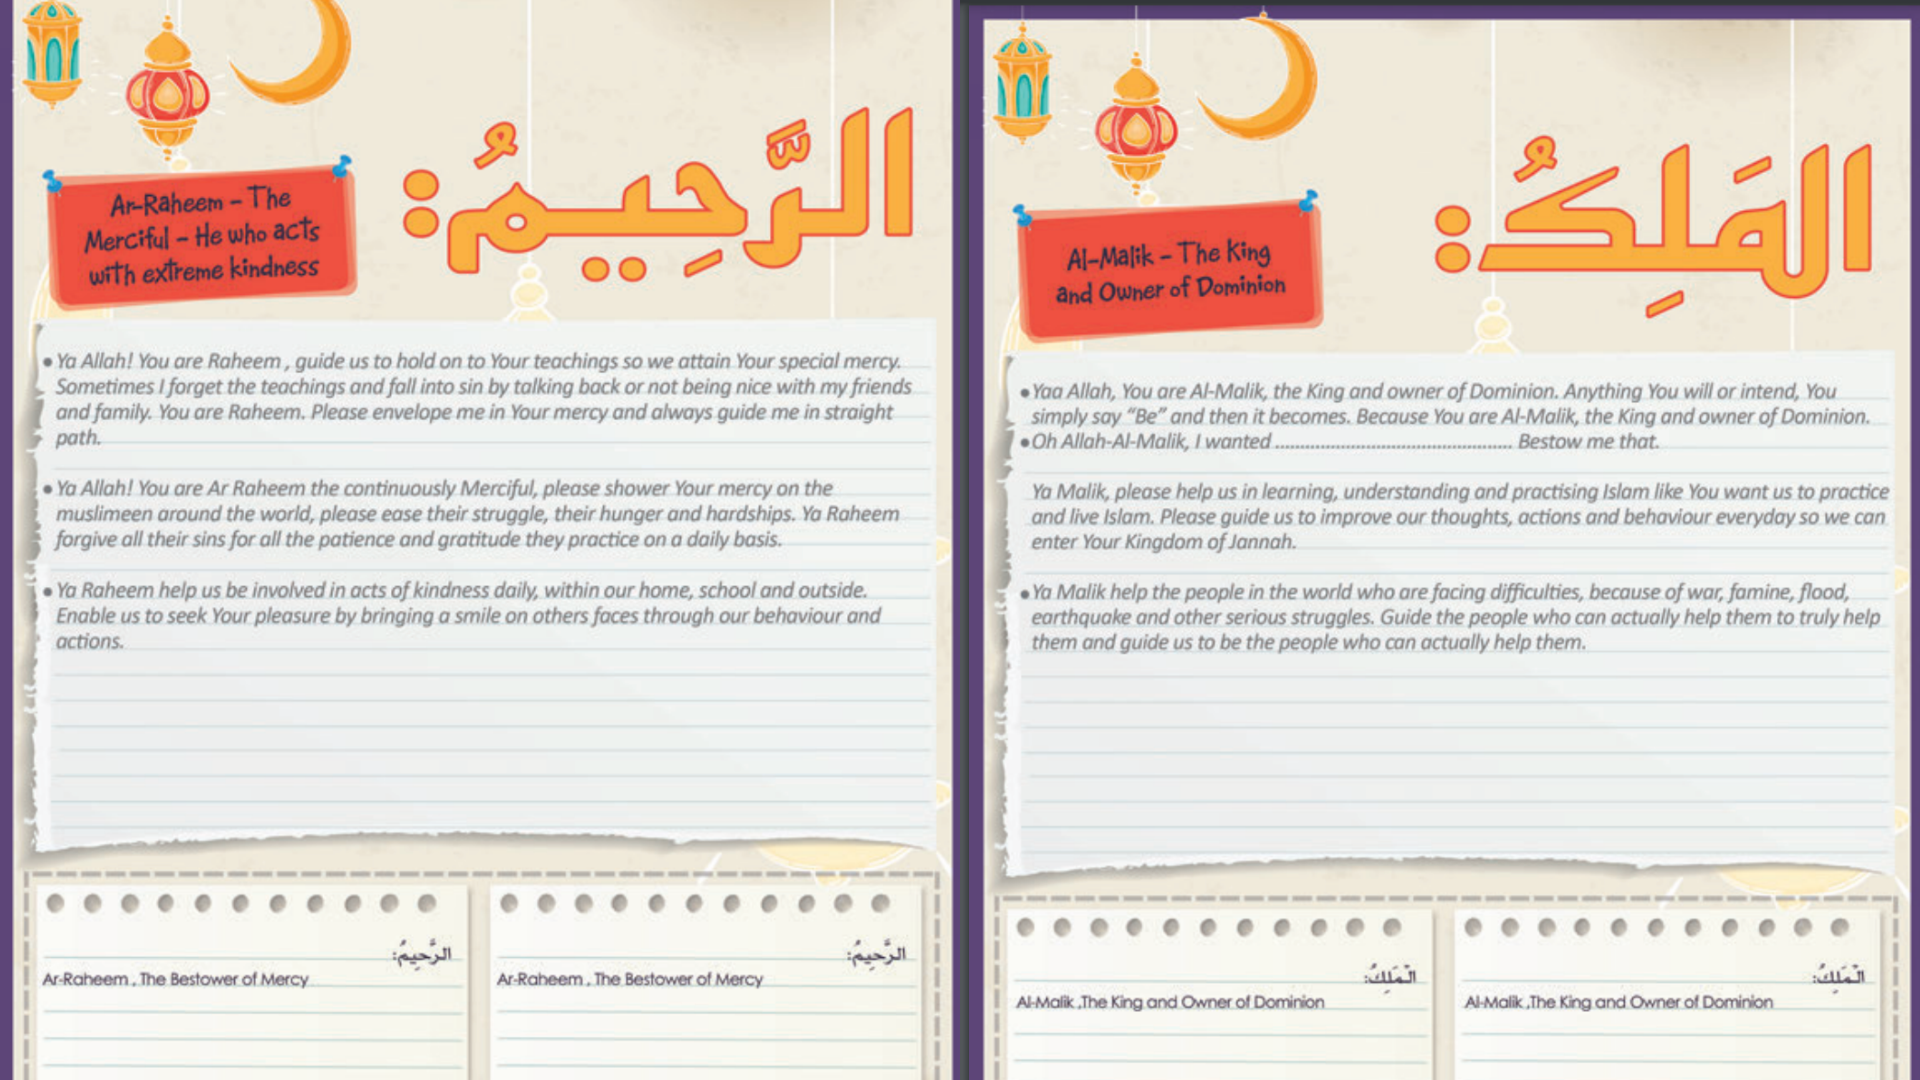 Ar-Raheem – The
Merciful – He who acts
with extreme kindness
الرَّحِيمُ:
• Ya Allah! You are Raheem , guide us to hold on to Your teachings so we attain Your special mercy.
Sometimes I forget the teachings and fall into sin by talking back or not being nice with my friends
and family. You are Raheem. Please envelope me in Your mercy and always guide me in straight
path.
• Ya Allah! You are Ar Raheem the continuously Merciful, please shower Your mercy on the
muslimeen around the world, please ease their struggle, their hunger and hardships. Ya Raheem
forgive all their sins for all the patience and gratitude they practice on a daily basis.
• Ya Raheem help us be involved in acts of kindness daily, within our home, school and outside.
Enable us to seek Your pleasure by bringing a smile on others faces through our behaviour and
actions.
الرَّحِيمُ:
Ar-Raheem , The Bestower of Mercy
الرَّحِيمُ:
Ar-Raheem , The Bestower of Mercy
Al-Malik – The King
and Owner of Dominion
المَلِكُ:
• Yaa Allah, You are Al-Malik, the King and owner of Dominion. Anything You will or intend, You
simply say “Be” and then it becomes. Because You are Al-Malik, the King and owner of Dominion.
• Oh Allah-Al-Malik, I wanted ........................................ Bestow me that.
Ya Malik, please help us in learning, understanding and practising Islam like You want us to practice
and live Islam. Please guide us to improve our thoughts, actions and behaviour everyday so we can
enter Your Kingdom of Jannah.
• Ya Malik help the people in the world who are facing difficulties, because of war, famine, flood,
earthquake and other serious struggles. Guide the people who can actually help them to truly help
them and guide us to be the people who can actually help them.
الْمَلِكُ:
Al-Malik ,The King and Owner of Dominion
الْمَلِكُ:
Al-Malik ,The King and Owner of Dominion